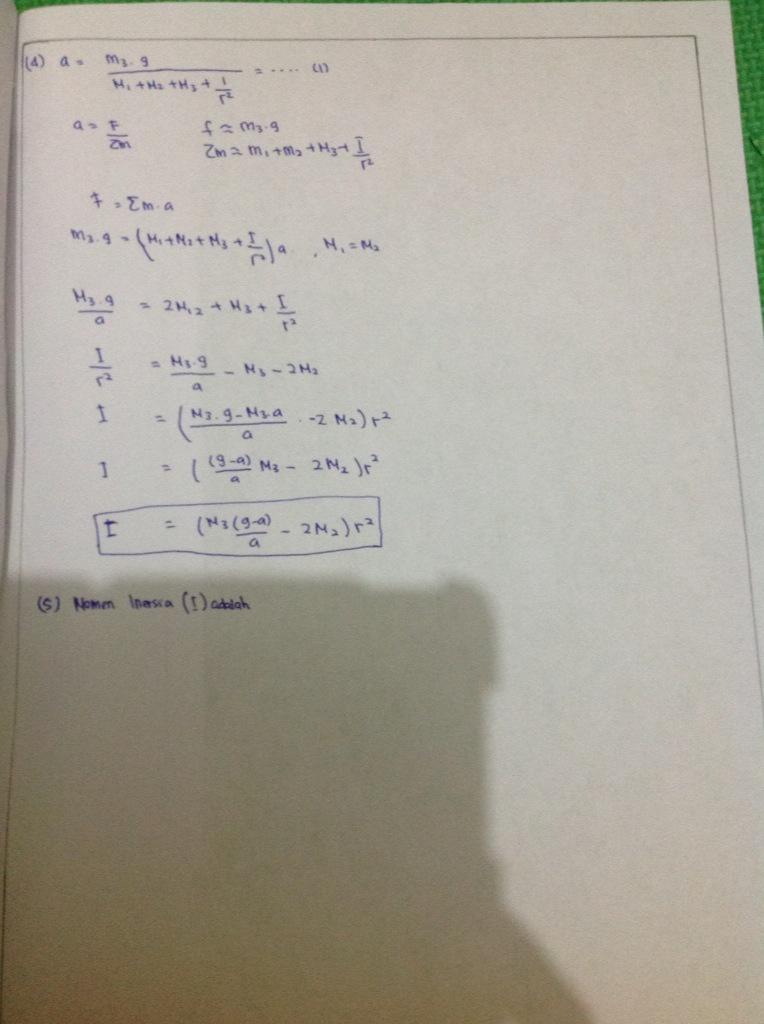 (4) a = m3.g / (M1 + M2 + M3 + I/r²) = .... (1)
a = F/Σm f ≈ m3.g
Σm ≈ m1 + m2 + M3 + I/r²
F = Σm.a
m3.g = (M1 + M2 + M3 + I/r²) a , M1 = M2
M3.g/a = 2M12 + M3 + I/r²
I/r² = M3.g/a - M3 - 2M2
I = (M3.g - M3.a/a . -2 M2) r²
I = ((g-a)/a M3 - 2M2) r²
I = (M3(g-a)/a - 2M2) r²
(5) Momen Inersia (I) adalah